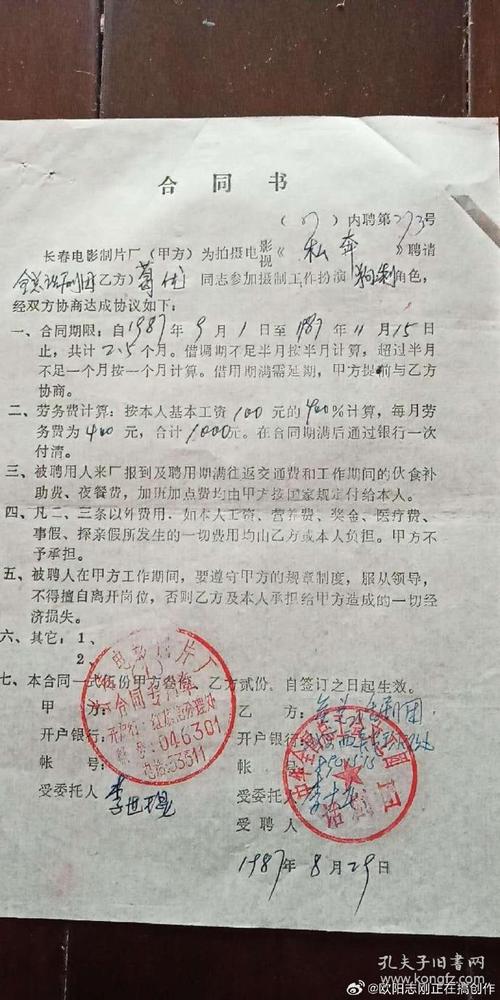 合同书
(87)内聘第273号
长春电影制片厂(甲方)为拍摄电影视《私奔》聘请
全总话剧团乙方)葛优同志参加摄制工作扮演角色,
经双方协商达成协议如下:
一、合同期限:自1987年9月1日至1987年11月15日
止,共计2.5个月。借调期不足半月按半月计算,超过半月
不足一个月按一个月计算。借用期满需延期,甲方提前与乙方
协商。
二、劳务费计算:按本人基本工资100元的400%计算,每月劳
务费为400元,合计1000元。在合同期满后通过银行一次
付清。
三、被聘用人来厂报到及聘用期满往返交通费和工作期间的伙食补
助费、夜餐费,加班加点费均由甲方按国家规定付给本人。
四、凡二、三条以外费用,如本人工资、营养费、奖金、医疗费、
事假、探亲假所发生的一切费用均由乙方或本人负担。甲方不
予承担。
五、被聘人在甲方工作期间,要遵守甲方的规章制度,服从领导,
不得擅自离开岗位,否则乙方及本人承担给甲方造成的一切经
济损失。
六、其它:1、
2、
七、本合同一式份甲方份,乙方贰份,自签订之日起生效。
甲方:
乙方:全总话剧团
开户银行:
开户银行:
帐号:
帐号:
受委托人
受委托人
受聘人
李世
电影制片厂
合同专用章
046301
电话53311
话剧团
1987年8月29日
孔夫子旧书网
@欧阳志刚正在搞创作